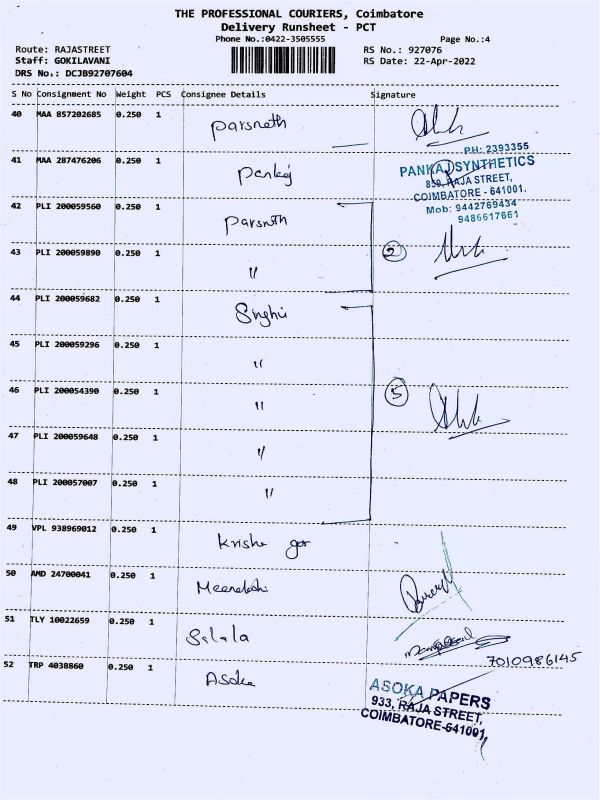 THE PROFESSIONAL COURIERS, Coimbatore
Delivery Runsheet - PCT
Phone No.:0422-3505555 Page No.:4
Route: RAJASTREET RS No.: 927076
Staff: GOKILAVANI RS Date: 22-Apr-2022
DRS No.: DCJB92707604
S No Consignment No Weight PCS Consignee Details Signature
40 MAA 857202685 0.250 1 Parsneth
41 MAA 287476206 0.250 1 Pankaj
PH: 2393355
PANKAJ SYNTHETICS
859, RAJA STREET,
COIMBATORE - 641001.
Mob: 9442769434
9486617661
42 PLI 200059560 0.250 1 Parsnth
43 PLI 200059890 0.250 1 " 2
44 PLI 200059682 0.250 1 Singhvi
45 PLI 200059296 0.250 1 "
46 PLI 200054390 0.250 1 " 5
47 PLI 200059648 0.250 1 "
48 PLI 200057007 0.250 1 "
49 VPL 938969012 0.250 1 Krishe
50 AMD 24700041 0.250 1 Meenakshi
51 TLY 10022659 0.250 1
7010986145
52 TRP 4038860 0.250 1 Asoka
ASOKA PAPERS
933, RAJA STREET,
COIMBATORE-641001,